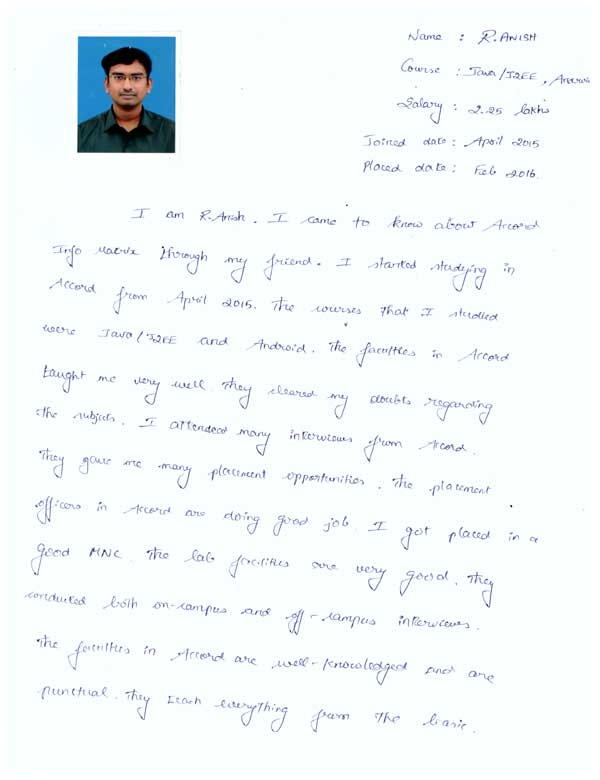 Name : R. ANISH
Course : Java/J2EE,
Salary : 2.25 lakhs
Joined date : April 2015
Placed date : Feb 2016.
I am R. Anish. I came to know about Accord
Info Matrix through my friend. I started studying in
Accord from April 2015. The courses that I studied
were Java/J2EE and Android. The faculties in Accord
taught me very well. They cleared my doubts regarding
the subjects. I attended many interviews from Accord.
They gave me many placement opportunities. The placement
officers in Accord are doing good job. I got placed in a
Good MNC. The lab facilities are very good. They
conducted both on-campus and off-campus interviews.
The faculties in Accord are well-knowledged and are
punctual. They teach everything from the basic.